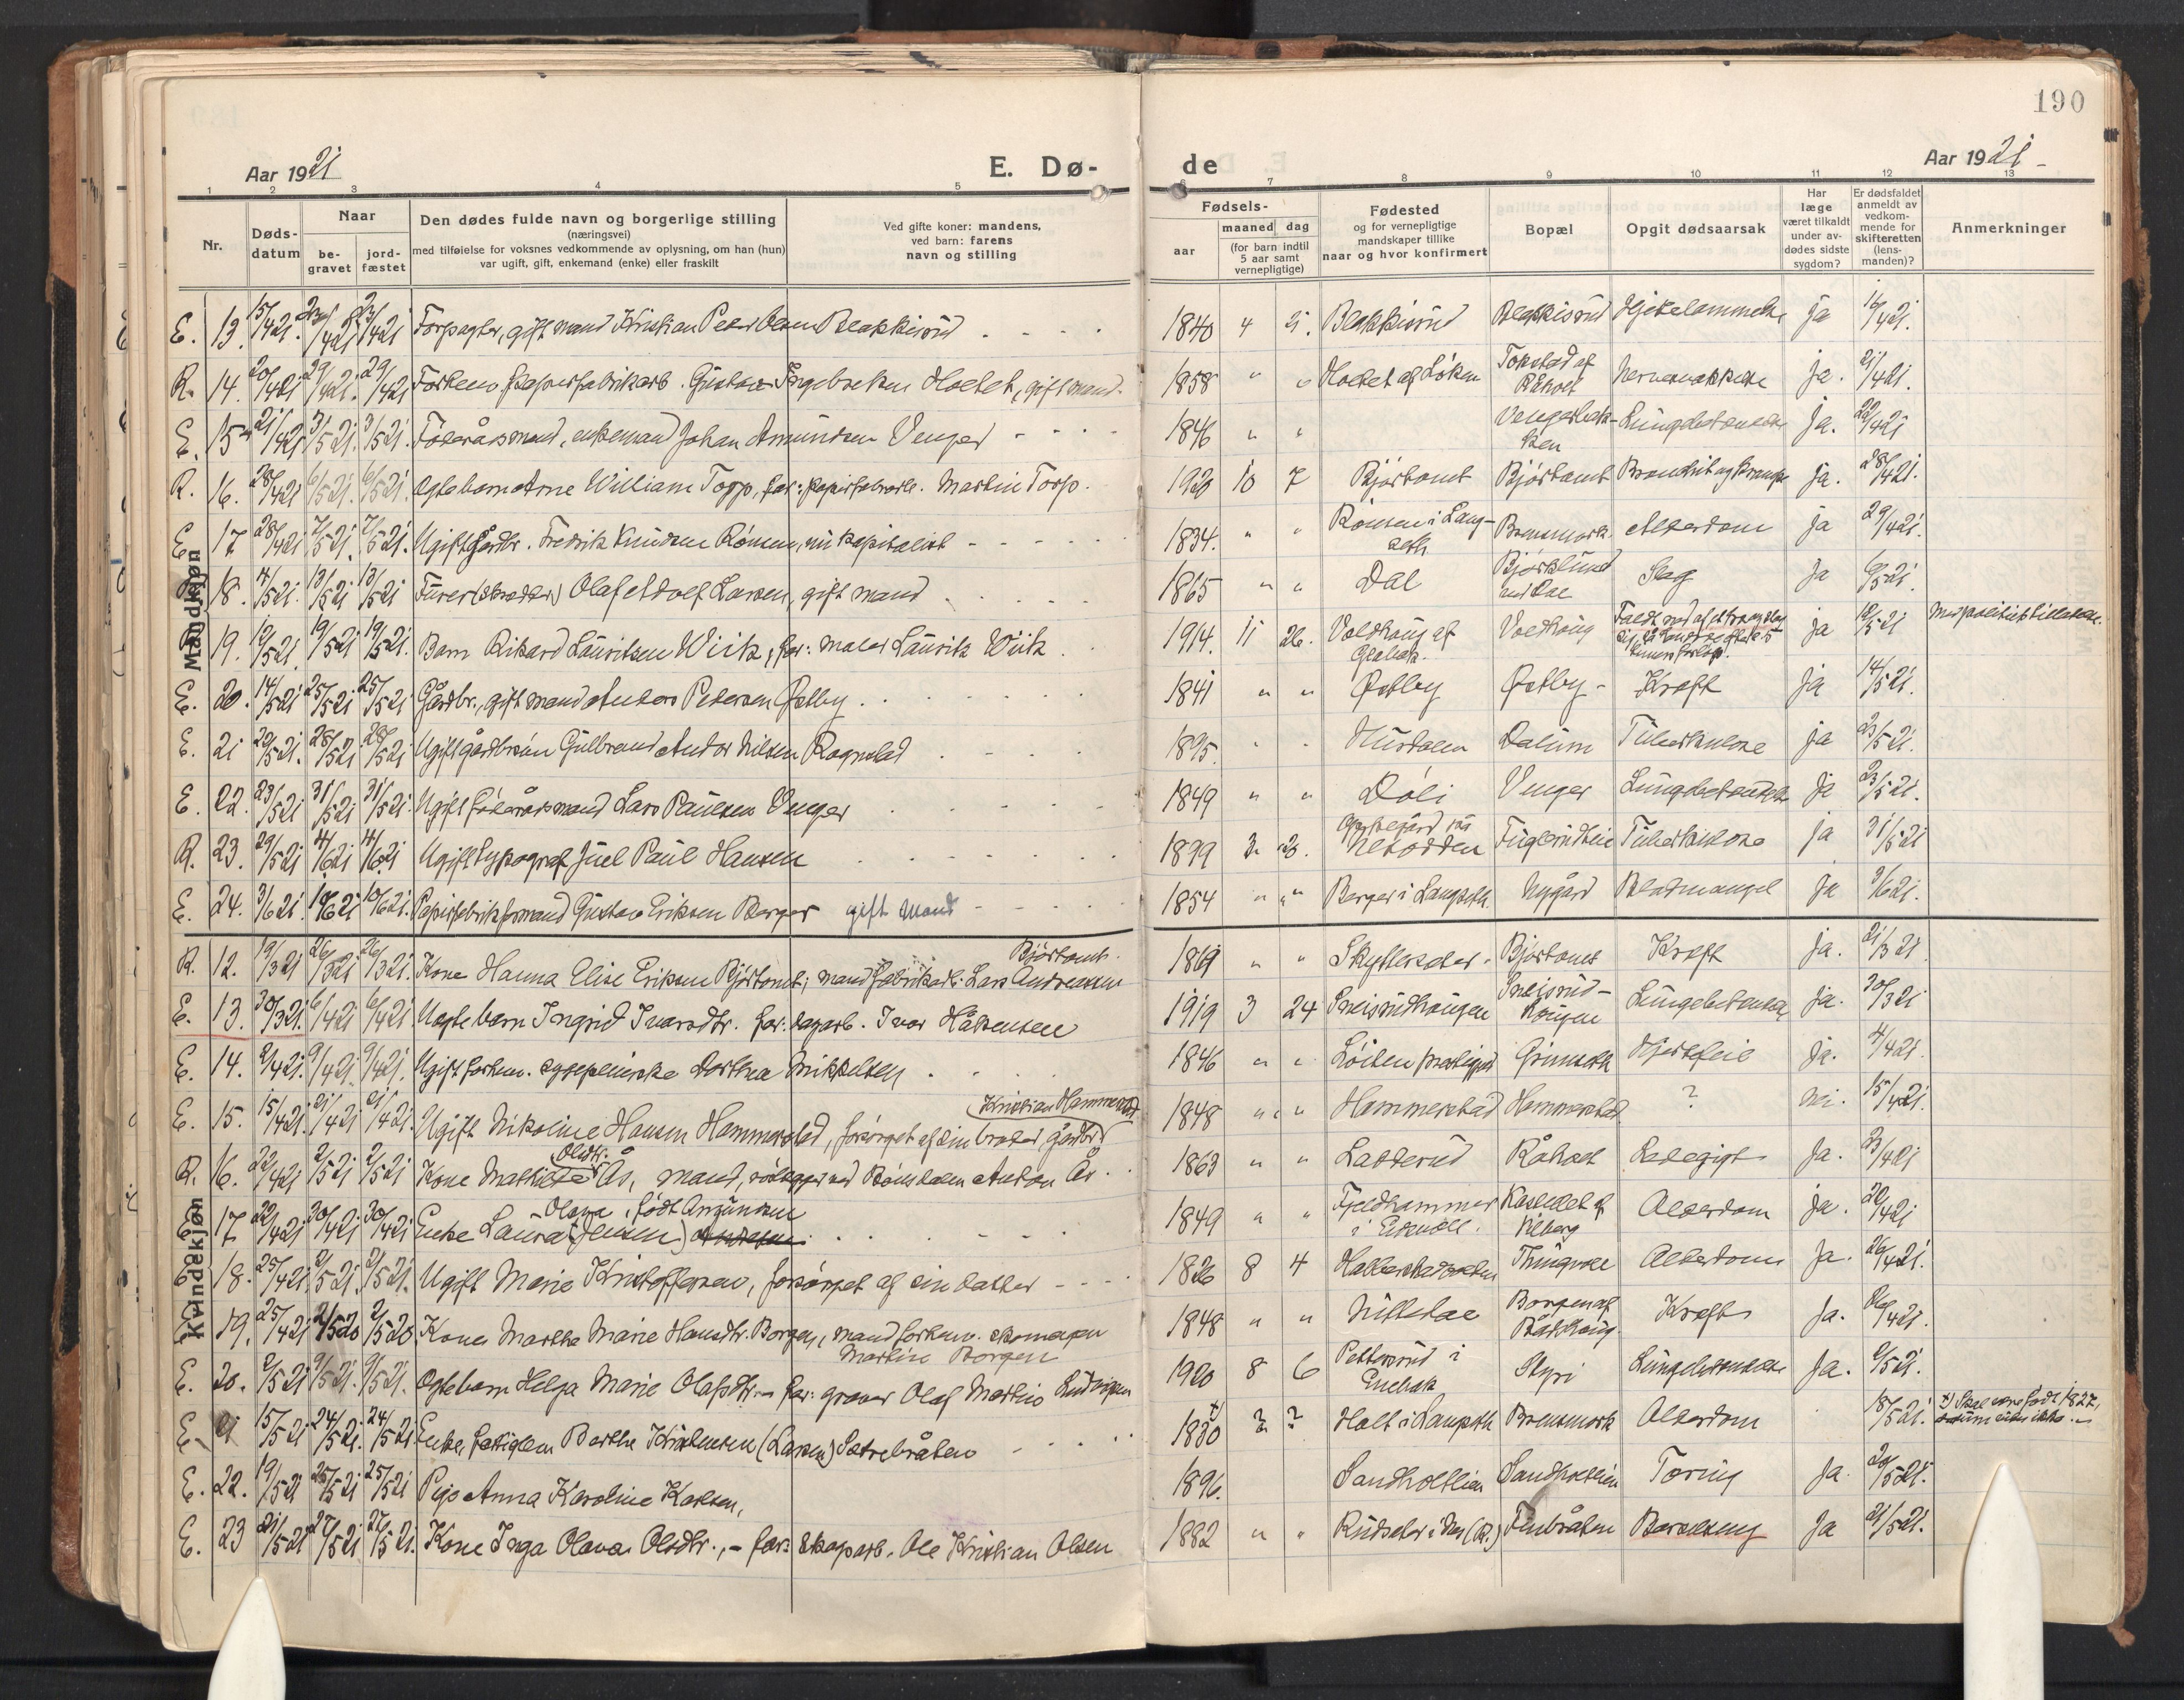 190
Aar 1921
E. Dø-
de
Aar 1921
1 2 3 4 5 6 7 8 9 10 11 12 13
Nr.
Døds-
datum
Naar
be-
gravet
jord-
fæstet
Den dødes fulde navn og borgerlige stilling
(næringsvei)
med tilføielse for voksnes vedkommende av oplysning, om han (hun)
var ugift, gift, enkemand (enke) eller fraskilt
Ved gifte koner: mandens,
ved barn: farens
navn og stilling
Fødsels-
aar
maaned dag
(for barn indtil
5 aar samt
vernepligtige)
Fødested
og for vernepligtige
mandskaper tillike
naar og hvor konfirmert
Bopæl
Opgit dødsaarsak
Har
læge
været tilkaldt
under av-
dødes sidste
sygdom?
Er dødsfaldet
anmeldt av
vedkom-
mende for
skifteretten
(lens-
manden)?
Anmerkninger
Mandkjøn
E. 13. 15/421. 23/421 23/421 Forpagter, gift mand Kristian Peter Olsen Blakkisrud 1840 4 Blakkisrud Blakkisrud ja 16/421.
R. 14. 20/421 29/421. 29/421 Forhenv. papirfabrikarb. Gustav Ingebretsen Hoelet, gift mand. 1858 " " Hoelet af Løken Tokstad af Råholt ja. 21/421.
E. 15 21/421 3/521. 3/521. Føderåsmand, enkemand Johan Amundsen Venger 1846 " " Vengerbak-
ken Lungebetendelse ja. 22/421
R. 16. 28/421 6/521. 6/521. Ægtebarn Arne William Torp, far: papirfabrarb. Martin Torp. 1920 10 7 Bjørtomt Bjørtomt Bronchit og krampe ja. 28/421.
E. 17 28/421 7/521. 7/521. Ugift gårdbr. Fredrik Knudsen Rømsen, nu kapitalist 1834. " " Rømsen i Lang-
seth Bromsmork Alderdom ja 29/421.
R. 18. 4/521. 13/521 13/521 Furer (skrædder) Olaf Adolf Larsen, gift mand 1865 " " Dal Bjørklund
ved Dal Slag ja 6/521.
R. 19. 12/521. 19/521 19/521. Barn Rikard Lauritsen Wiik, far: maler Laurits Wiik 1914. 11 26. Voldhaug af Voldhaug ja 12/521
E. 20. 14/521 25/521 25/521 Gårdbr., gift mand Anders Petersen Østby 1841 " " Østby Østby - Kræft ja 14/521.
E. 21 20/521. 28/521 28/521 Ugift gårdbrsøn Gulbrand Andor Nilsen Rognstad 1895. Husdalen Dalum Tuberkulose ja 23/521.
E. 22. 23/521 31/521 31/521. Ugift føderåsmand Lars Paulsen Venger 1849 " " Døli Venger Lungebetendelse ja 23/521.
R. 23. 29/521 4/621 4/621 Ugift typograf Juel Paul Hansen 1899 3. 20. Nesodden Tuberkulose ja 31/521
E. 24. 3/621. 10/621 10/621. Papirfabrikformand Gustav Eriksen Berger gift mand 1854 " " Berger i Langseth. Nygård Blodmangel ja 3/621.
Kvindekjøn
R. 12. 19/321 26/321 26/321. Kone Hanna Elise Eriksen Bjørtomt; mand fabrikarb. Lars Andreassen Bjørtomt. 1869 " " Skyttersæter Bjørtomt Kræft ja. 21/321
E. 13. 30/321. 6/421 6/421 Uægte barn Ingrid Ivarsdtr. far: dagarb. Ivar Håkensen 1919 3 24 Sneisrudhaugen Sneisrud-
haugen Lungebetendelse ja. 30/321
E. 14. 2/421. 9/421 9/421. Ugift forhenv. sygepleierske Dorthea Mikkelsen 1846 " " Løiten prestegjeld Grimseth Hjertefeil ja. 4/421.
E. 15. 15/421. 21/421 21/421. Ugift Nikoline Hansen Hammerstad, forsørget af sin broder, gårdbr. Kristian Hammerstad 1848 " " Hammerstad Hammerstad ? nei. 15/421.
R. 16. 22/421 2/521 2/521 Kone Mathilde Olsdtr. Ås, mand, rørlægger ved Bøndalen Anton Ås 1863 " " Ladderud Råholt Ledegigt ja. 23/421
E. 17 22/421 30/421 30/421 Enke Laura Olava (Jensen), født Amundsen 1849 " " Fjeldhammer
i Eidsvoll. Alderdom ja. 22/421
E. 18. 25/421. 2/521. 2/521. Ugift Marie Kristoffersen, forsørget af sin datter 1836 8 4 Alderdom ja. 26/421.
E. 19. 25/421 2/520 2/520. Kone Marthe Marie Hansdtr. Borgen, mand forhenv. skomager
Martin Borgen 1848 " " Nittedal Borgen af
Bådshaug. Kræft ja. 26/421.
E. 20. 2/521 9/521. 9/521. Ægtebarn Helga Marie Olafsdtr. - far: graver Olaf Martin Ludvigsen 1920 8 6 Pettersrud i
Enebak Styri Lungebetendelse ja. 2/521.
E. 21 15/521 24/521. 24/521. Enke, fattiglem Berthe Kristensen (Larsen) Sætrebråten 1830 x) ? ? Holt i Langseth Bromsmork Alderdom 18/521. x) Skal være født 1827,
E. 22. 19/521 25/521 25/521 Pige Anna Karoline Karlsen, 1896. Sandholtlien Sandholtlien Tæring ja. 20/521.
E. 23 21/521 27/521 27/521. Kone Inga Olava Olsdtr., - far: skogarb. Ole Kristian Olsen 1882 " " Rudseter i Dal (R.) Finbråten Barselseng ja 21/521.